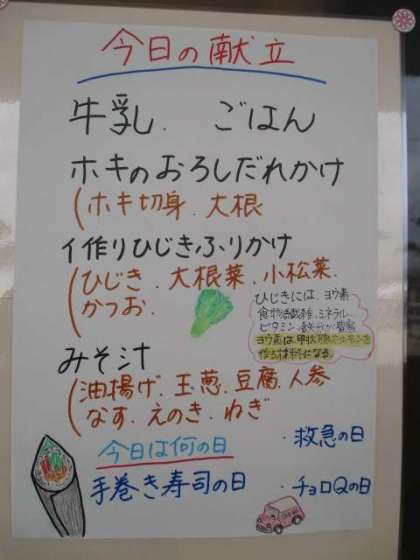 今日の献立
牛乳. ごはん
ホキのおろしだれかけ
(ホキ切身. 大根
手作りひじきふりかけ
(ひじき. 大根菜. 小松菜.
かつお.
ひじきには、ヨウ素
食物繊維、ミネラル
ビタミン、鉄分が豊富
ヨウ素は、甲状腺ホルモンを
作る材料になる。
みそ汁
(油揚げ. 玉葱. 豆腐. 人参
なす. えのき. ねぎ
今日は何の日
・救急の日
手巻き寿司の日
・チョロQの日